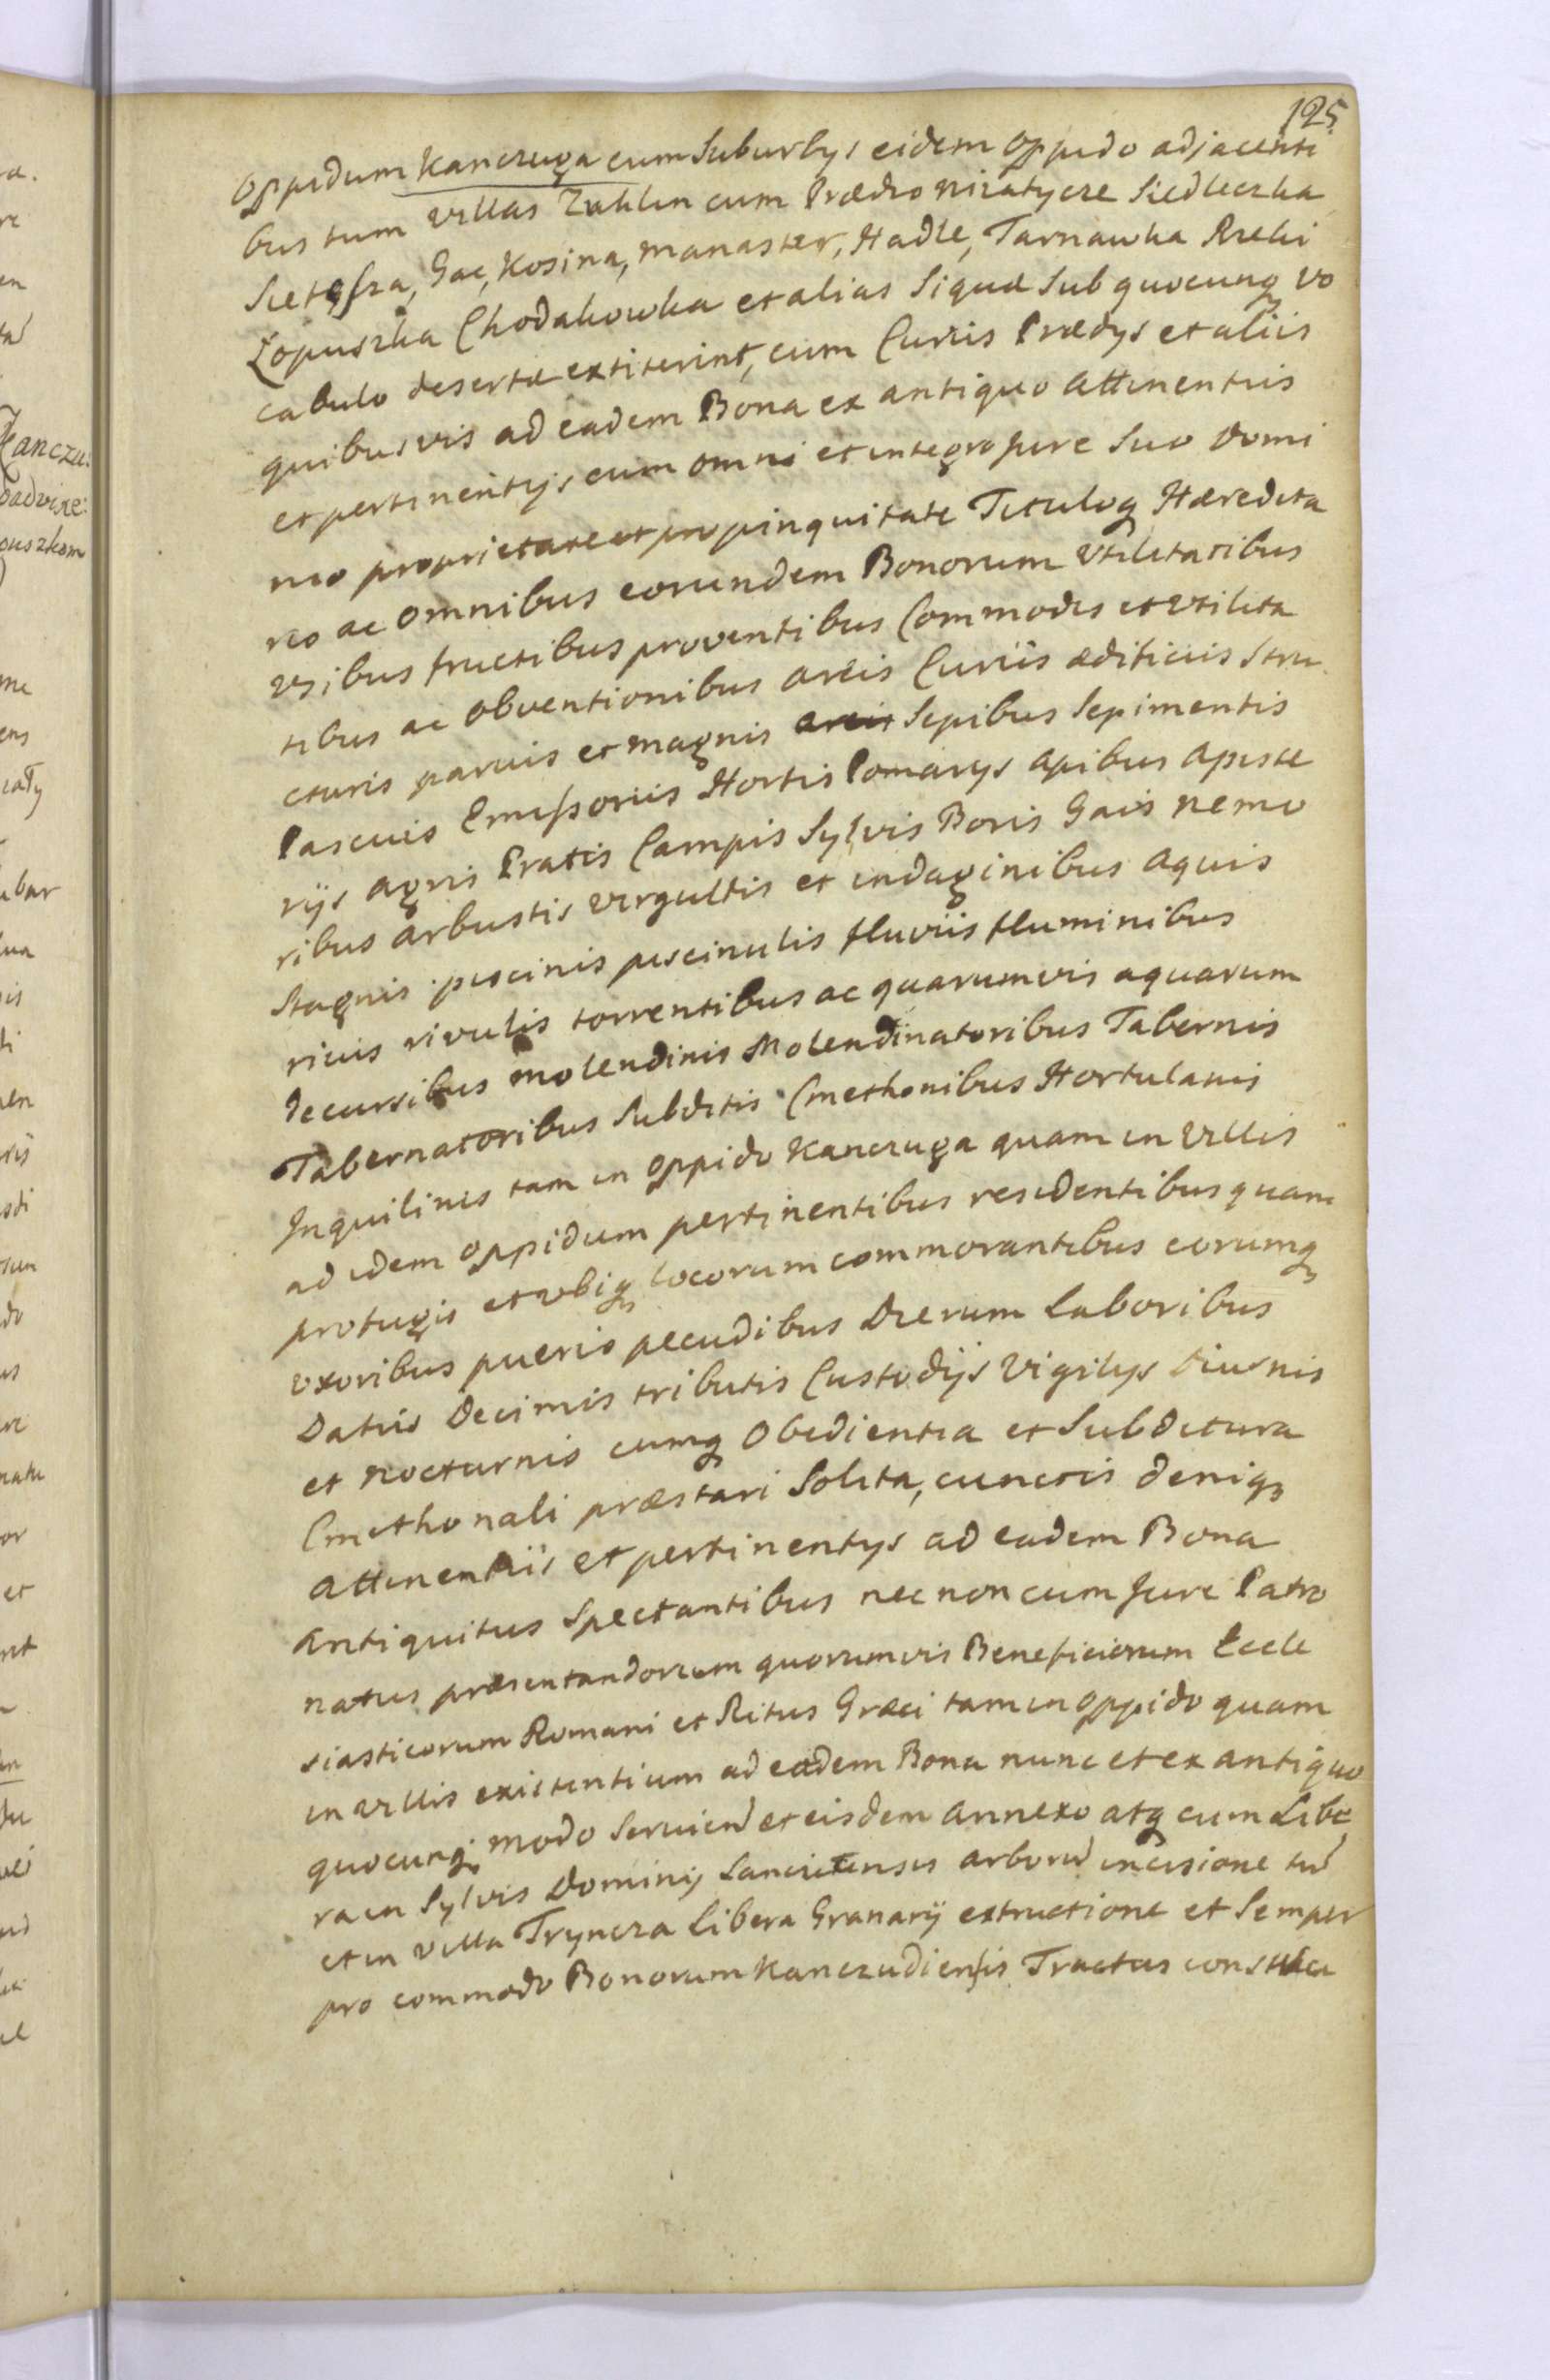 125
Oppidum Kanczuga cum Suburbys eidem oppido adjacenti
bus tum villas Zuklin cum Prædio Niżatycze Siedleczka
Sietesza, Gac, Kosina, Manaster, Hadle, Tarnawka Rzeki
Łopuszka Chodakowka et alias Siquæ Sub quocunq vo
cabulo desertæ extiterint, cum Curiis Prædys et aliis
quibusvis ad eadem Bona ex antiquo attinentiis
et pertinentijs cum omni et integro jure Suo Domi
nio proprietate et propinquitate Tituloq Hæredita
rio ac omnibus eorundem Bonorum Vtilitatibus
vsibus fructibus proventibus Commodis et vtilita
tibus ac obventionibus areis Curiis ædificiis Stru
cturis parvis et magnis Sepibus Sepimentis
Pascuis Emissoriis Hortis Pomarys apibus apiste
rijs agris Pratis Campis Sylvis Boris Gais nemo
ribus arbustis virgultis et indaginibus aquis
Stagnis piscinis piscinulis fluviis fluminibus
rivis rivulis torrentibus ac quarumvis aquarum
decursibus molendinis Molendinatoribus Tabernis
Tabernatoribus Subditis Cmethonibus Hortulanis
Inquilinis tam in oppido Kanczuga quam in Villis
ad idem oppidum pertinentibus residentibus quam
profugis et vbiq locorum commorantibus eorumq
vxoribus pueris pecudibus Dierum Laboribus
Datiis Decimis tributis Custodijs Vigilys Diurnis
et nocturnis cumq Obedientia et Subditura
Cmethonali præstari Solita, cunctis deniq
attinentiis et pertinentys ad eadem Bona
antiquitus Spectantibus nec non cum Jure Patro
natus præsentandorum quorumvis Beneficiorum Eccle
siasticorum Romani et Ritus Græci tam in oppido quam
in villis existentium ad eadem Bona nunc et ex antiquo
quocunq modo Servien et eisdem annexo atq cum Libe
ra in Sylvis Dominij Lancutensis arborū incisione tū
et in villa Tryncza Libera Granarij extructione et Semper
pro commodo Bonorum Kanczudiensis Tractus